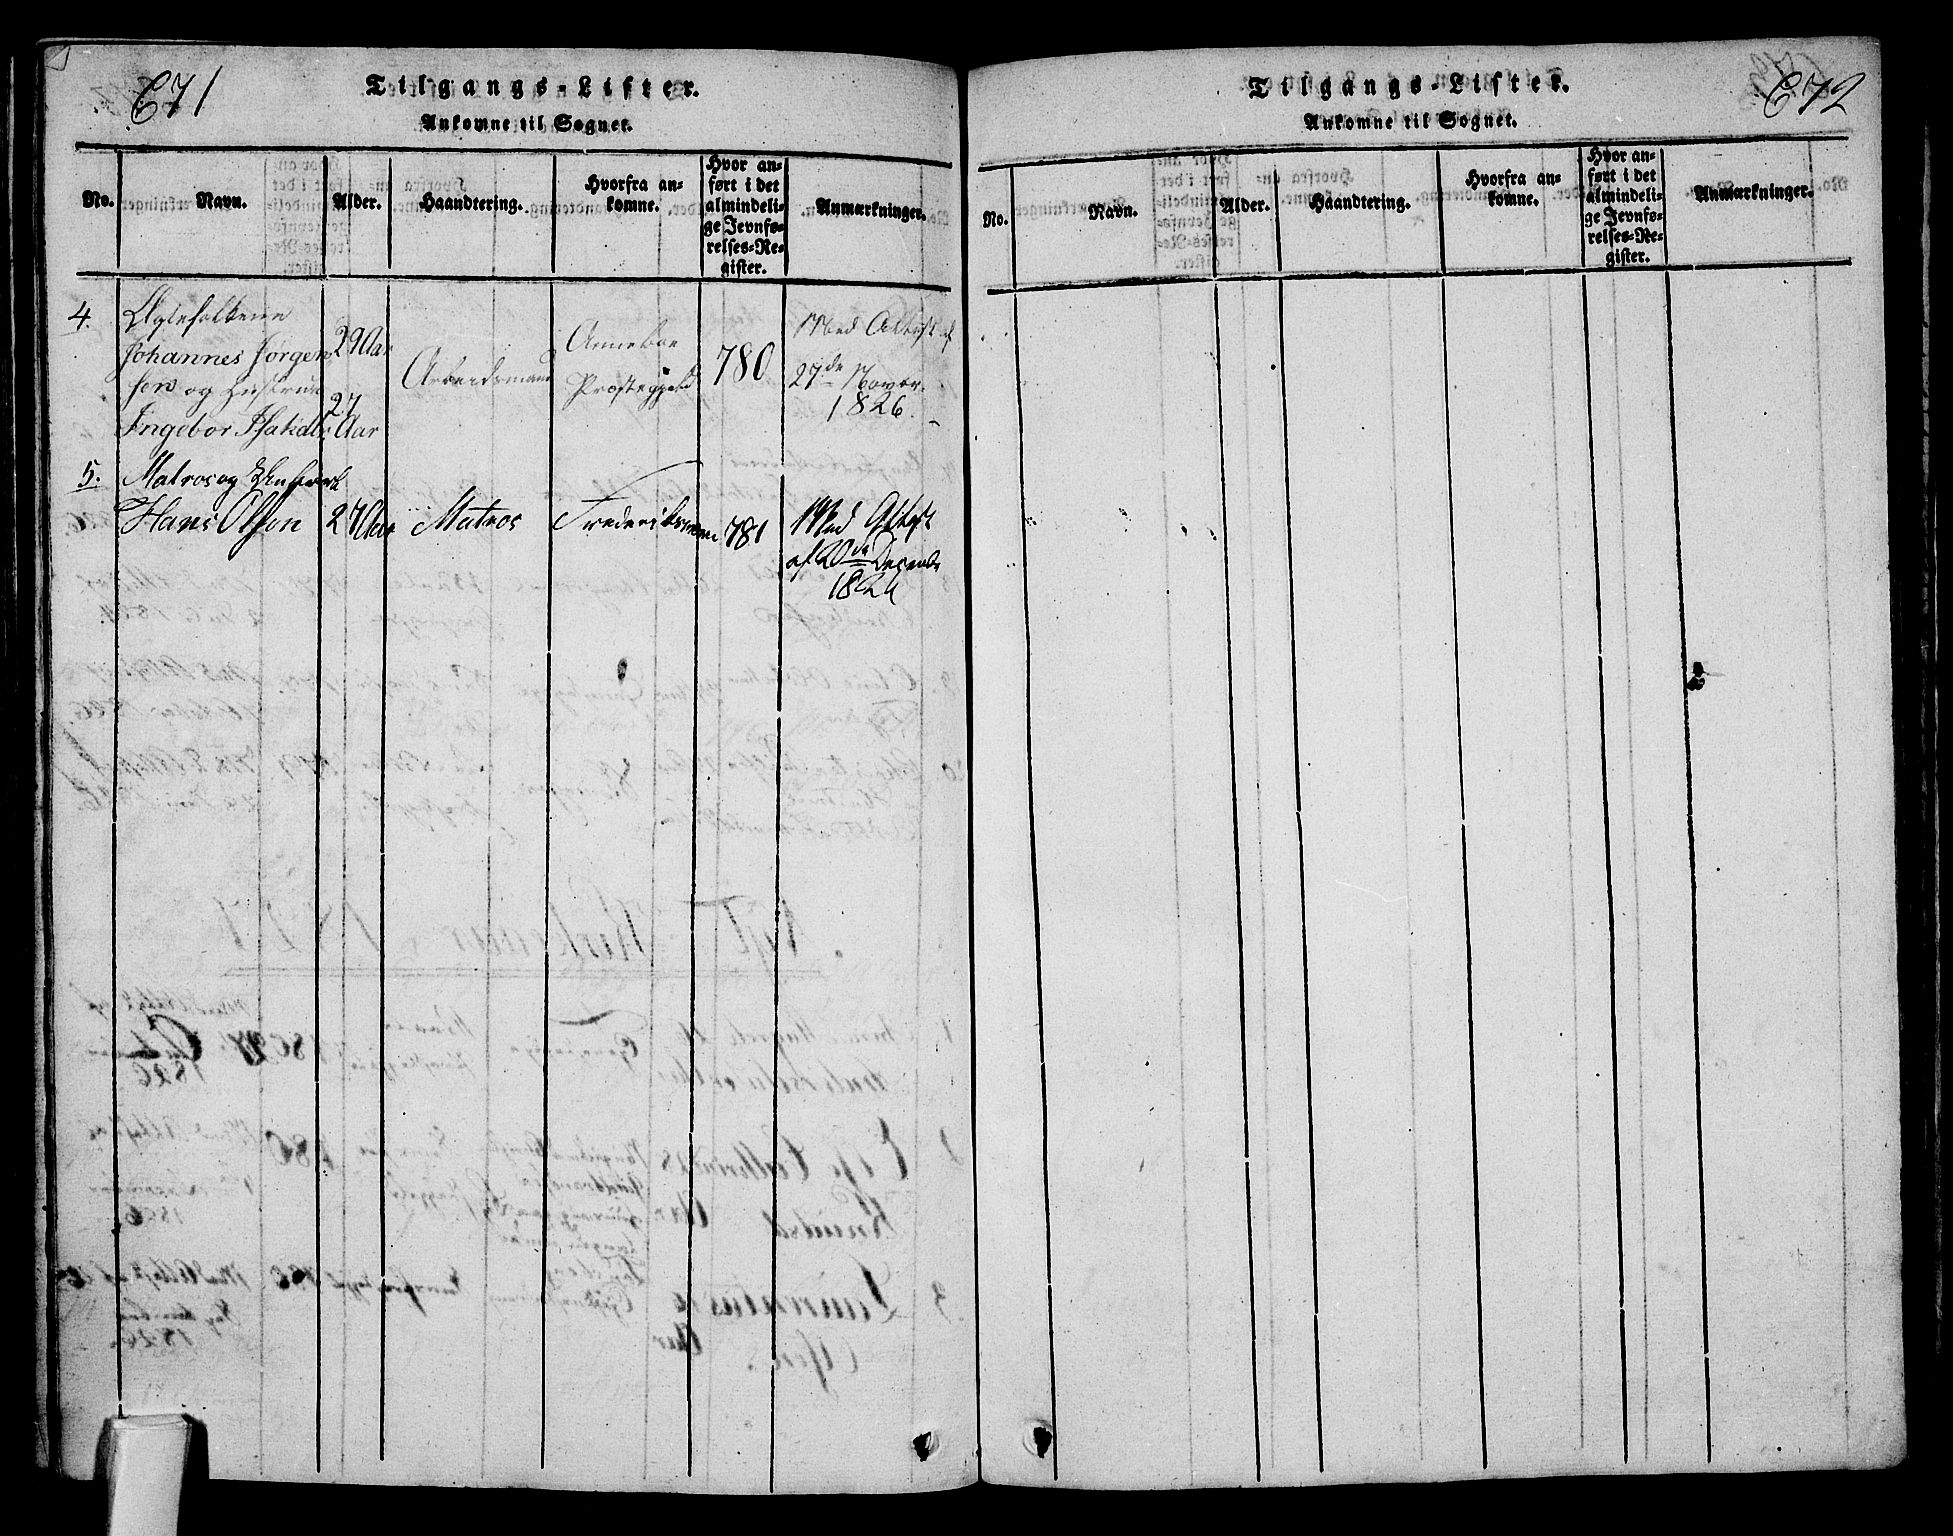 671
Tilgangs-Lister.
Ankomne til Sognet.
No.
Navn.
Alder.
Haandtering.
Hvorfra an-
komne.
Hvor an-
ført i det
almindeli-
ge Jevnfø-
relses-Re-
gister.
Anmærkninger.
4.
Ægtefolkene
Johannes Jørgen
sen og Hustrue
Ingebor
29 Aar
27
Aar
Arbeidsmand
Anneboe
Præstegjeld
780
Med Attest af
27de Novbr.
1826.
5.
Matros og
Hans Olsen
27 Aar
Matros
Frederiksværn
781
Med Attest
af 20de Decemb
1826
672
Tilgangs-Lister.
Ankomne til Sognet.
No.
Navn.
Alder.
Haandtering.
Hvorfra an-
komne.
Hvor an-
ført i det
almindeli-
ge Jevnfø-
relses-Re-
gister.
Anmærkninger.